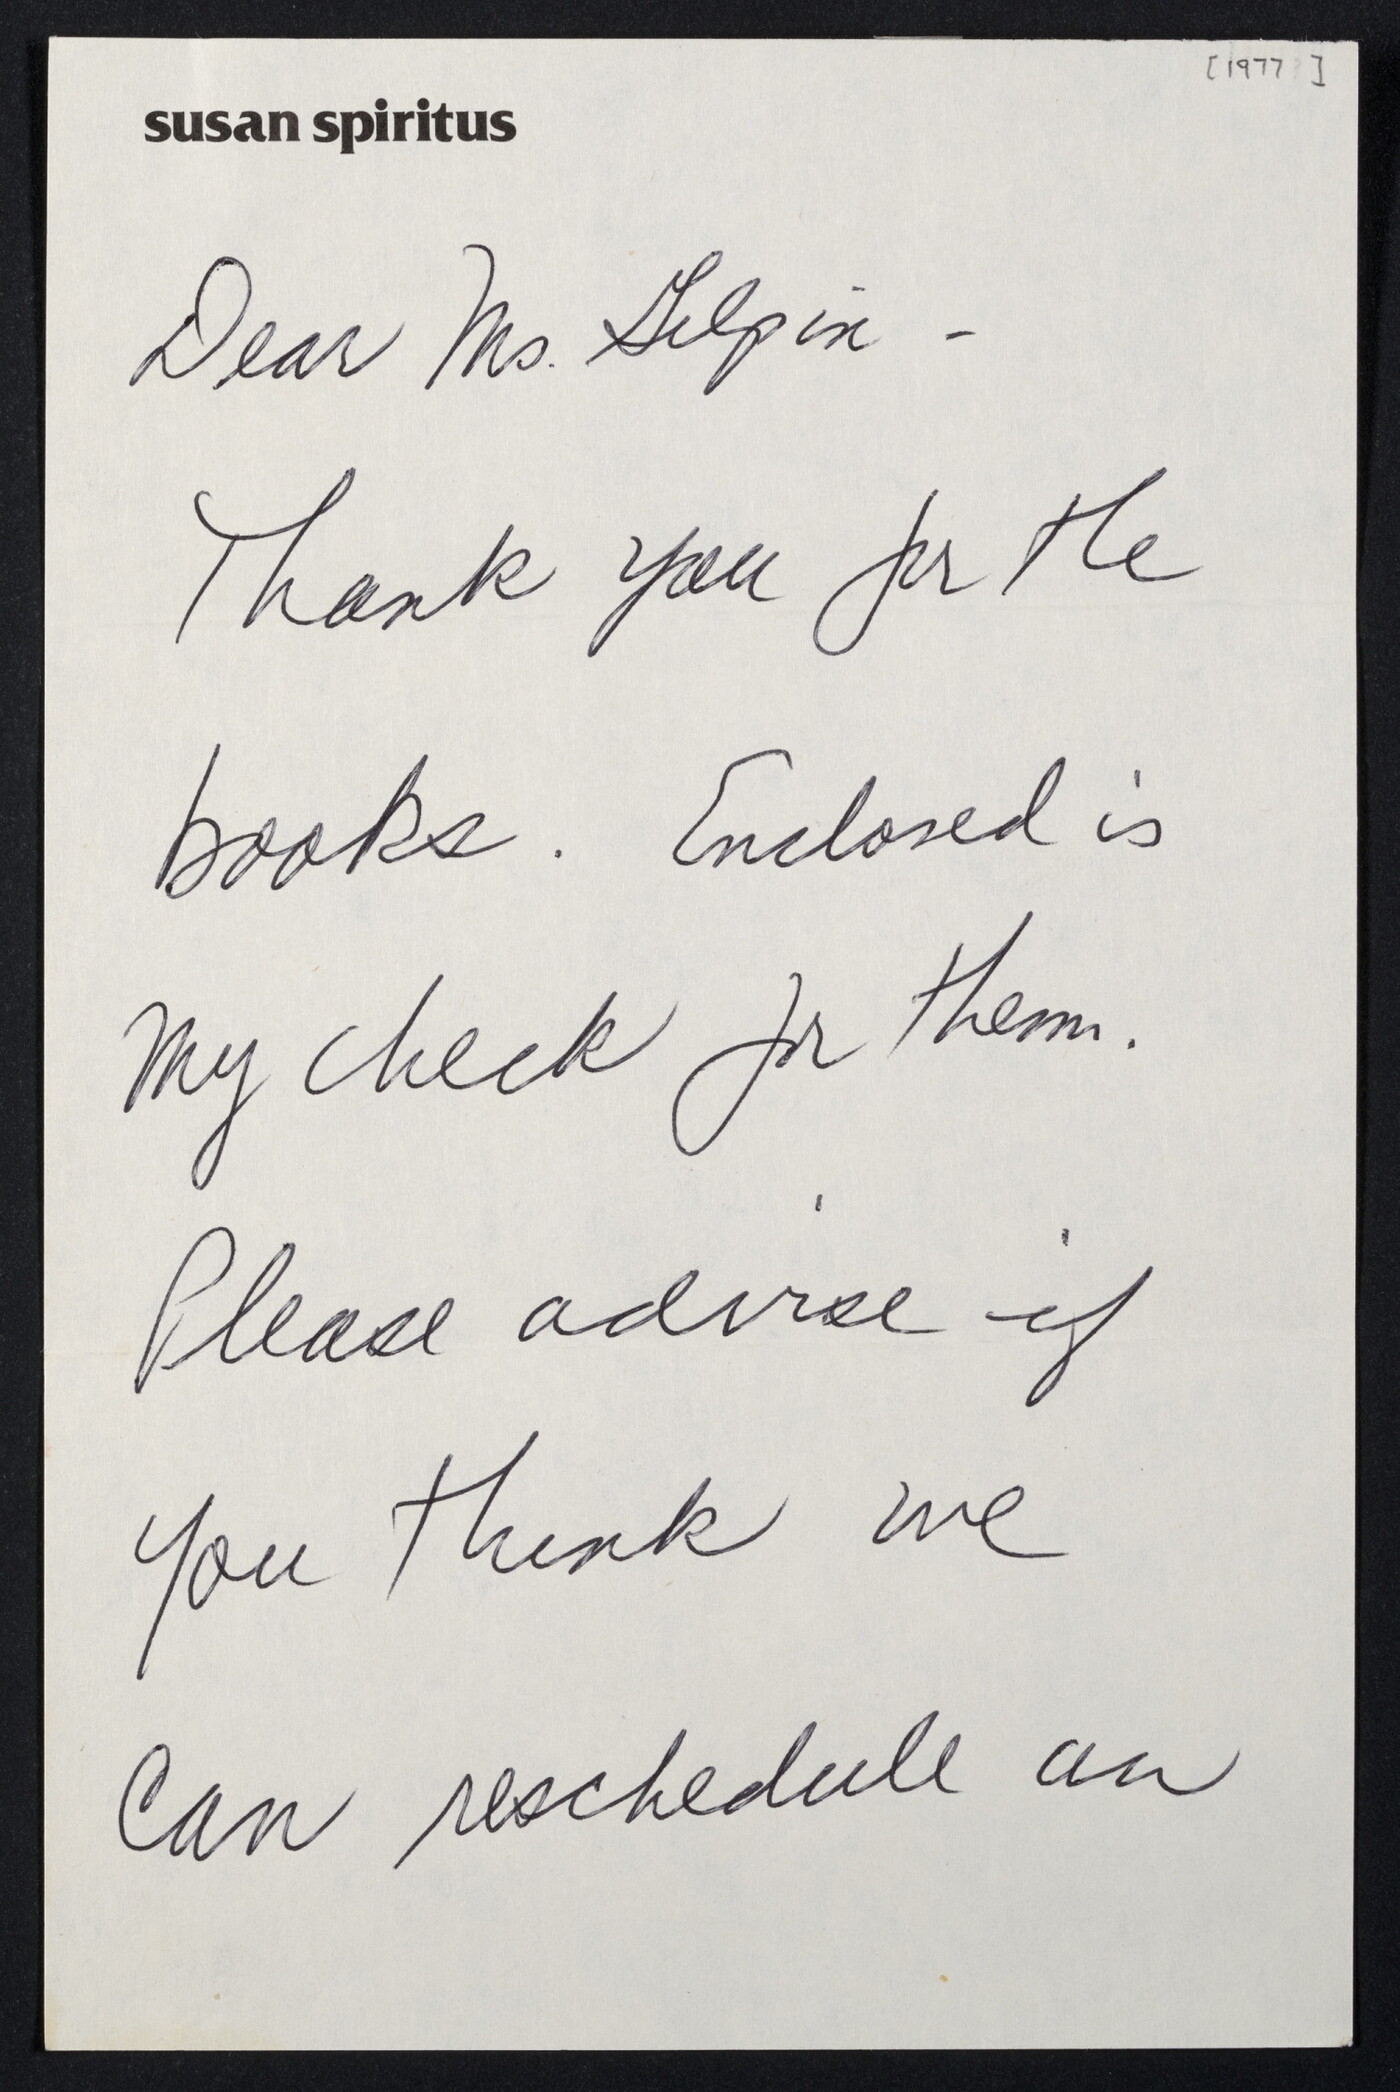 [1977 ]
susan spiritus
Dear Ms. Gilpin -
Thank you for the
books. Enclosed is
my check for them.
Please advise if
you think we
can reschedule an